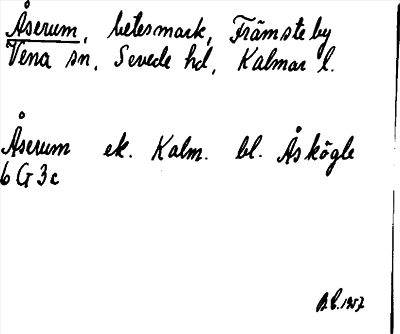 Åserum, betesmark, Främsteby
Vena sn, Sevede hd, Kalmar l.
Åserum ek. Kalm. bl. Åskögle
6 G 3 c
1957